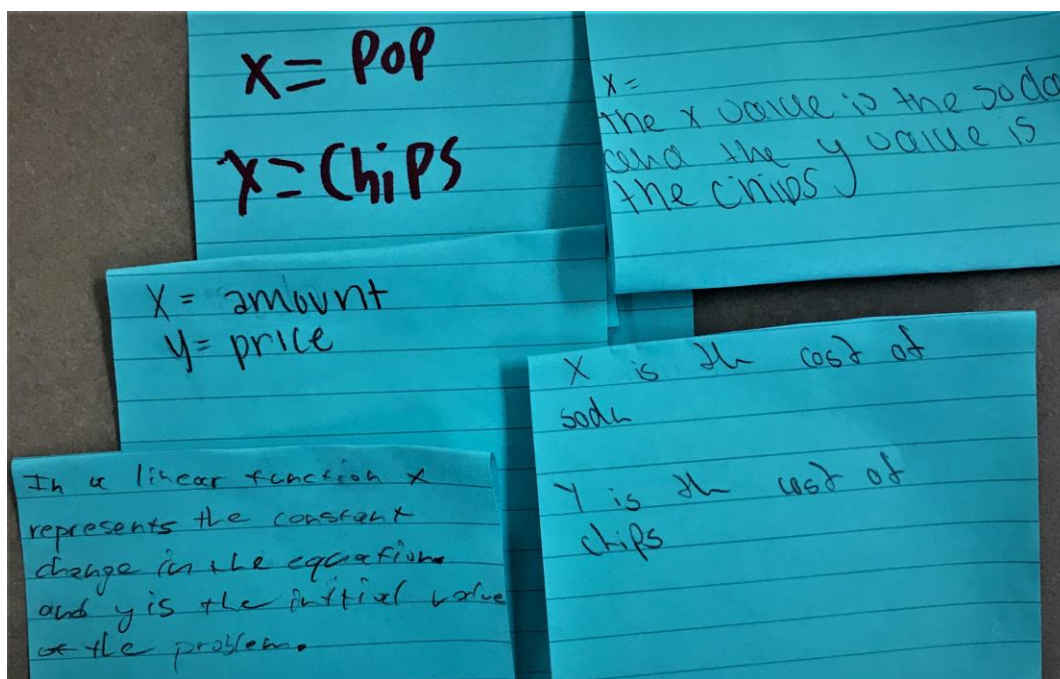 X = POP
Y = ChiPS
X =
the x value is the soda
and the y value is
the chips
X = amount
y = price
X is the cost of
soda
Y is the cost of
chips
In a linear function x
represents the constant
change in the equation
and y is the initial value
of the problem.